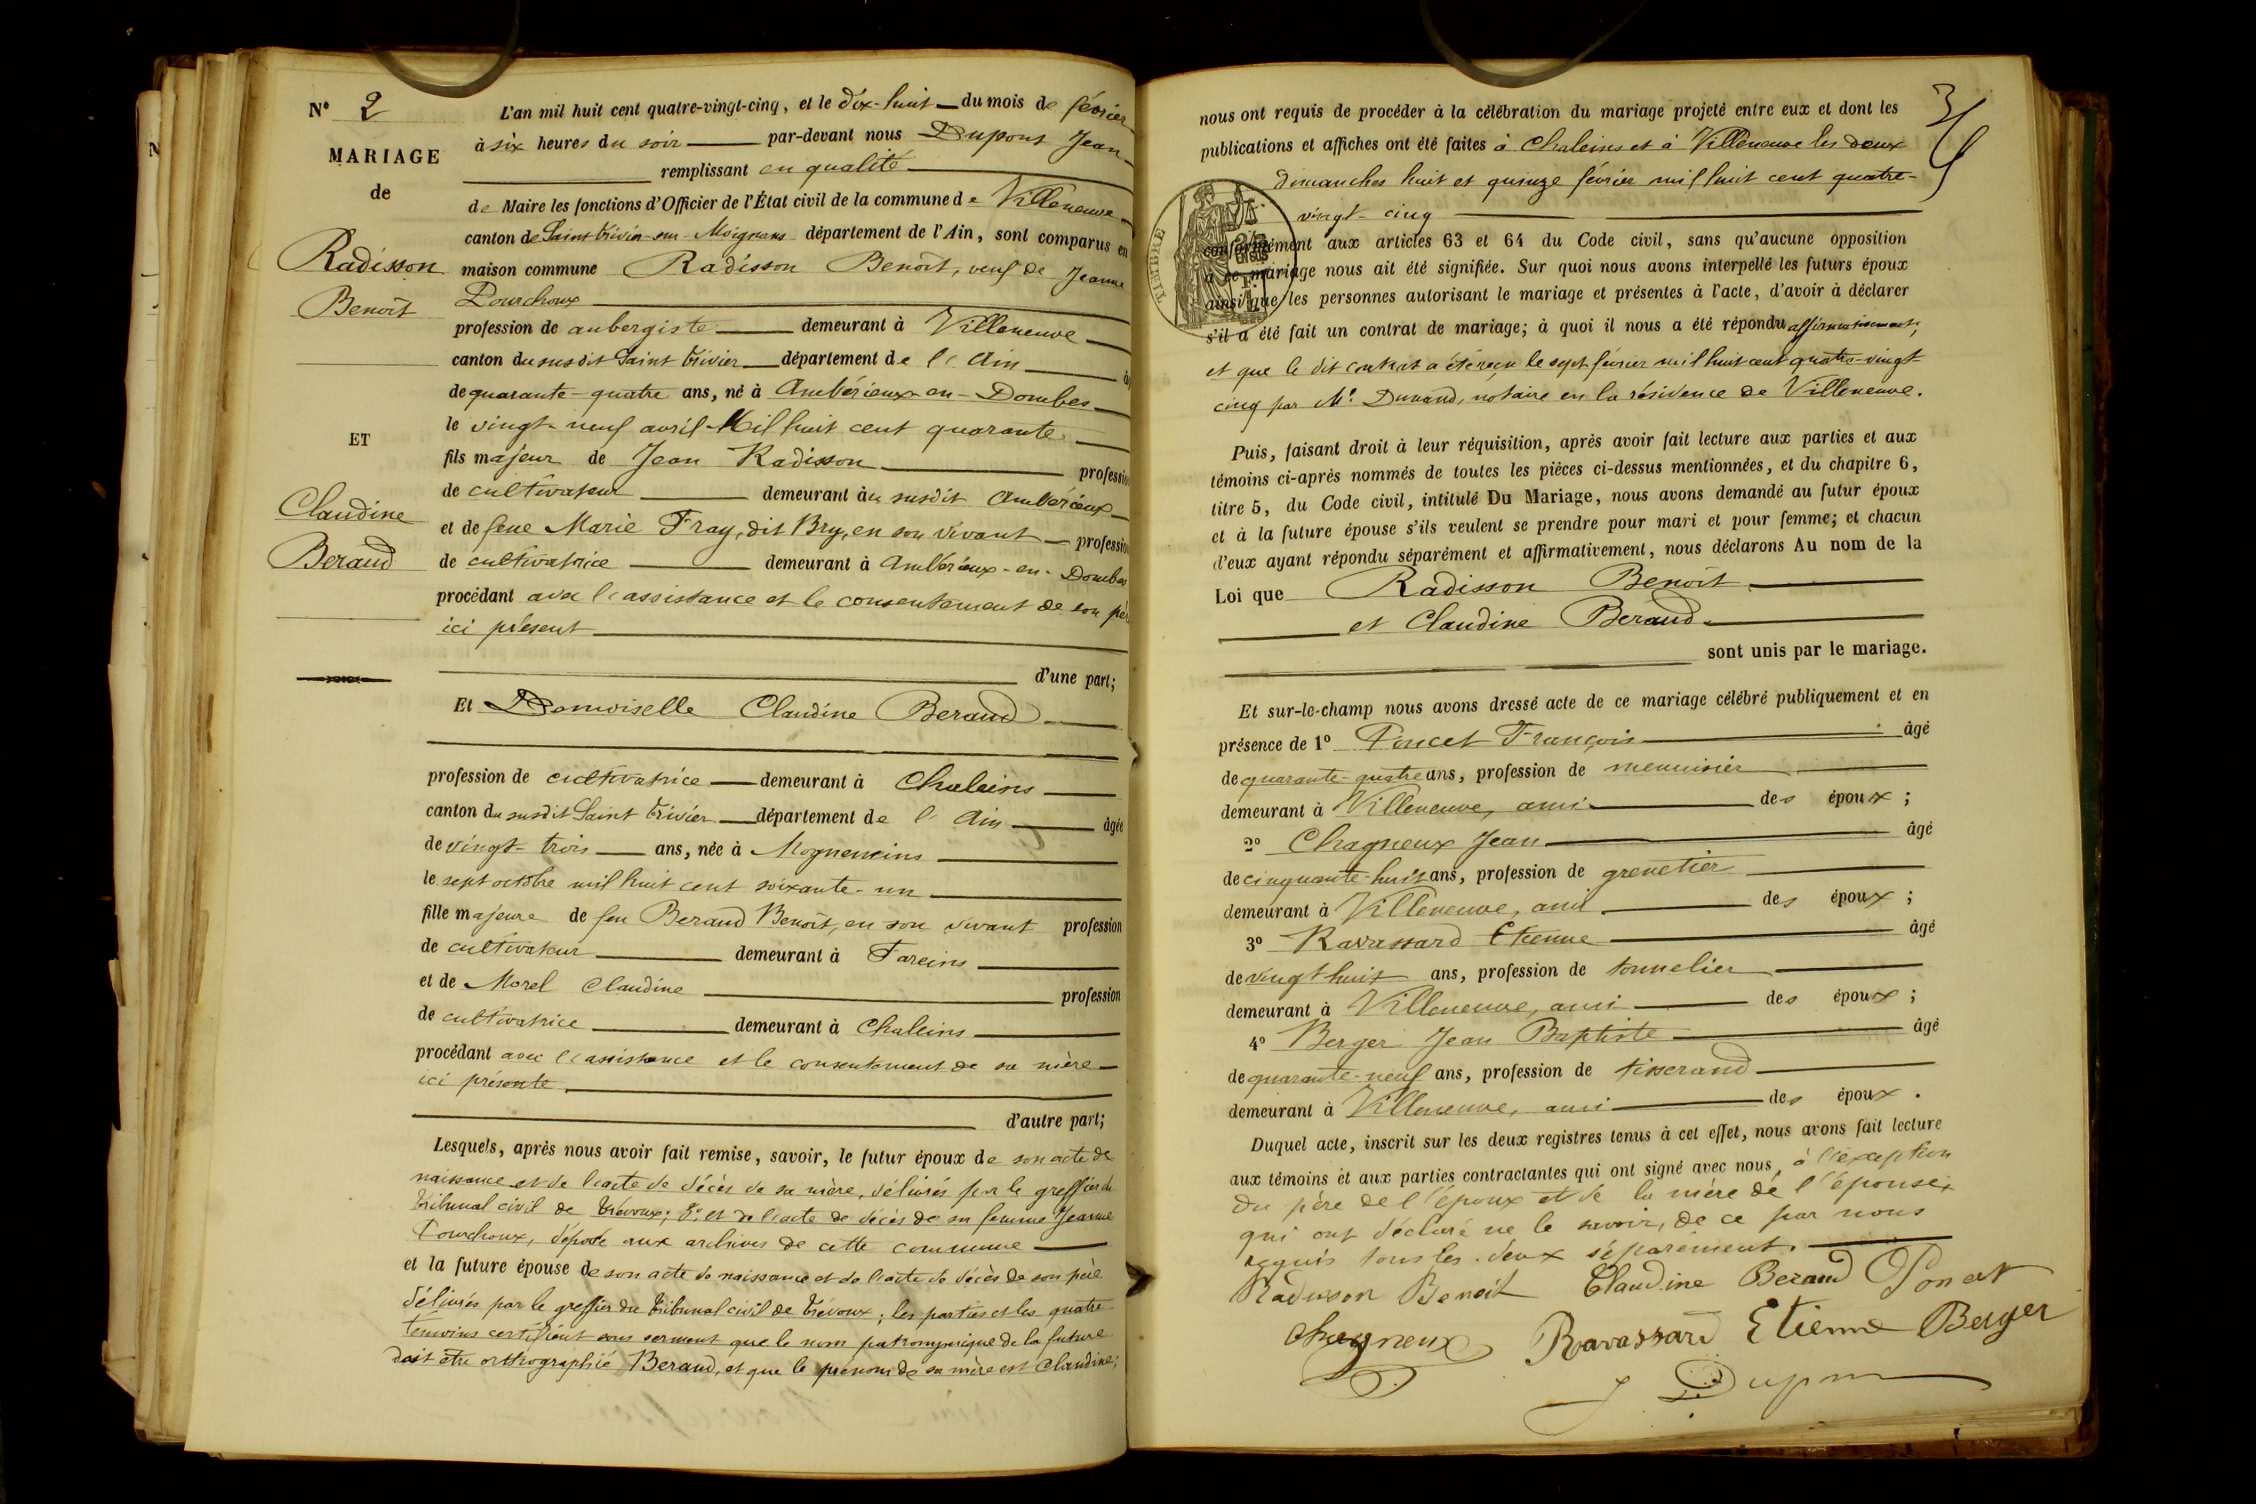 N° 2
MARIAGE
de
Radisson
Benoît
ET
Claudine
Beraud
L'an mil huit cent quatre-vingt-cinq, et le dix-huit du mois de février
à six heures du soir par-devant nous Dupont Jean
remplissant en qualité
de Maire les fonctions d'Officier de l'État civil de la commune de Villeneuve
canton de Saint-Trivier-sur-Moignans département de l'Ain, sont comparus en
maison commune Radisson Benoît, veuf de Jeanne
Pourchoux
profession de aubergiste demeurant à Villeneuve
canton du susdit Saint Trivier département de l'Ain
de quarante-quatre ans, né à Ambérieux-en-Dombes
le vingt-neuf avril Mil huit cent quarante
fils majeur de Jean Radisson profession
de cultivateur demeurant au susdit Ambérieux
et de feue Marie Fray, dit Bry, en son vivant profession
de cultivatrice demeurant à Ambérieux-en-Dombes
procédant avec l'assistance et le consentement de son père
ici présent
d'une part;
Et Demoiselle Claudine Beraud
profession de cultivatrice demeurant à Chaleins
canton du susdit Saint Trivier département de l'Ain âgée
de vingt-trois ans, née à Mogneneins
le sept octobre mil huit cent soixante-un
fille majeure de feu Beraud Benoît, en son vivant profession
de cultivateur demeurant à Fareins
et de Morel Claudine profession
de cultivatrice demeurant à Chaleins
procédant avec l'assistance et le consentement de sa mère
ici présente
d'autre part;
Lesquels, après nous avoir fait remise, savoir, le futur époux de son acte de
naissance et de l'acte de décès de sa mère, délivrés par le greffier du
tribunal civil de Trévoux; et de l'acte de décès de sa femme Jeanne
Pourchoux, déposé aux archives de cette commune
et la future épouse de son acte de naissance et de l'acte de décès de son père
délivrés par le greffier du tribunal civil de Trévoux; les parties et les quatre
témoins certifient sous serment que le nom patronymique de la future
doit être orthographié Beraud, et que le prénom de sa mère est Claudine;
nous ont requis de procéder à la célébration du mariage projeté entre eux et dont les
publications et affiches ont été faites à Chaleins et à Villeneuve les deux
dimanches huit et quinze février mil huit cent quatre-
vingt-cinq
TIMBRE
conformément aux articles 63 et 64 du Code civil, sans qu'aucune opposition
à ce mariage nous ait été signifiée. Sur quoi nous avons interpellé les futurs époux
ainsi que les personnes autorisant le mariage et présentes à l'acte, d'avoir à déclarer
s'il a été fait un contrat de mariage; à quoi il nous a été répondu affirmativement,
et que le dit contrat a été reçu le sept février mil huit cent quatre-vingt-
cinq par Me Durand, notaire en la résidence de Villeneuve.
Puis, faisant droit à leur réquisition, après avoir fait lecture aux parties et aux
témoins ci-après nommés de toutes les pièces ci-dessus mentionnées, et du chapitre 6,
titre 5, du Code civil, intitulé Du Mariage, nous avons demandé au futur époux
et à la future épouse s'ils veulent se prendre pour mari et pour femme; et chacun
d'eux ayant répondu séparément et affirmativement, nous déclarons Au nom de la
Loi que Radisson Benoît
et Claudine Béraud
sont unis par le mariage.
Et sur-le-champ nous avons dressé acte de ce mariage célébré publiquement et en
présence de 1° Poncet François âgé
de quarante-quatre ans, profession de menuisier
demeurant à Villeneuve, ami des époux;
2° Chagneux Jean âgé
de cinquante-huit ans, profession de grenetier
demeurant à Villeneuve, ami des époux;
3° Ravassard Etienne âgé
de vingt huit ans, profession de tonnelier
demeurant à Villeneuve, ami des époux;
4° Berger Jean Baptiste âgé
de quarante-neuf ans, profession de tisserand
demeurant à Villeneuve, ami des époux.
Duquel acte, inscrit sur les deux registres tenus à cet effet, nous avons fait lecture
aux témoins et aux parties contractantes qui ont signé avec nous, à l'exception
du père de l'époux et de la mère de l'épouse,
qui ont déclaré ne le savoir, de ce par nous
requis tous les deux séparément.
Radisson Benoit Claudine Beraud Poncet
Chagneux Ravassard Etienne Berger
J Dupont